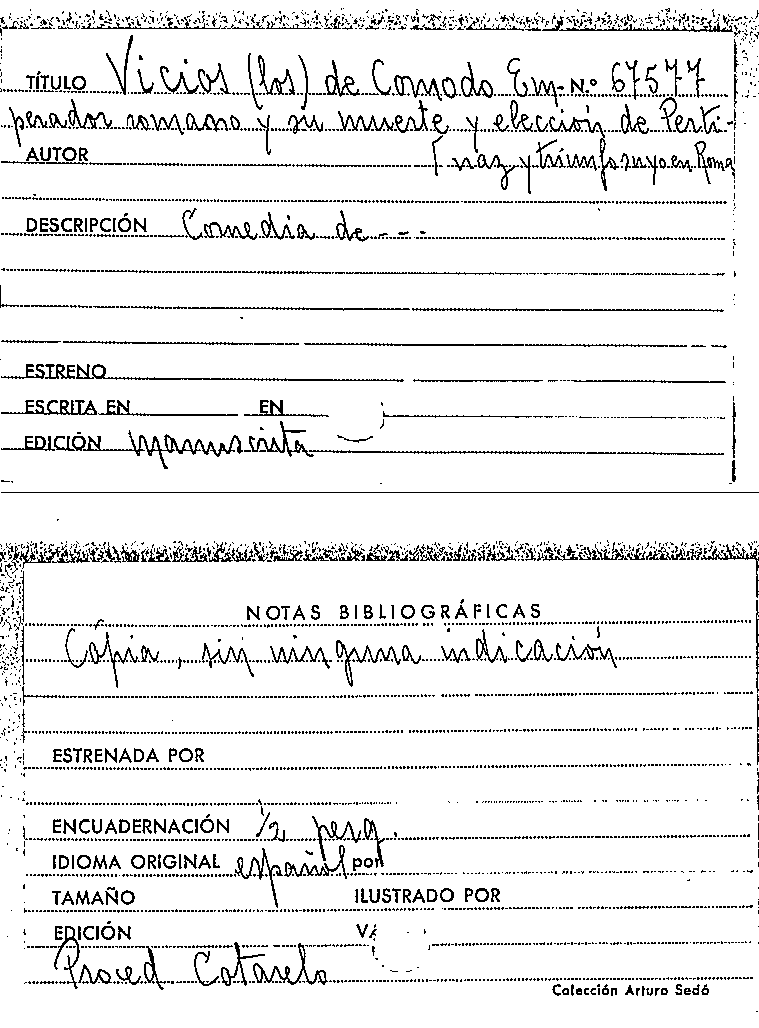 TÍTULO Vicios (los) de Comodo Em- N.º 67577
perador romano y su muerte y elección de Perti-
AUTOR [naz y triunfo suyo en Roma
DESCRIPCIÓN Comedia de - - -
ESTRENO
ESCRITA EN EN
EDICIÓN manuscrita
NOTAS BIBLIOGRÁFICAS
Cópia, sin ninguna indicación
ESTRENADA POR
ENCUADERNACIÓN 1/2 perg.
IDIOMA ORIGINAL español por
TAMAÑO ILUSTRADO POR
EDICIÓN
Proced Cotarelo
Colección Arturo Sedó